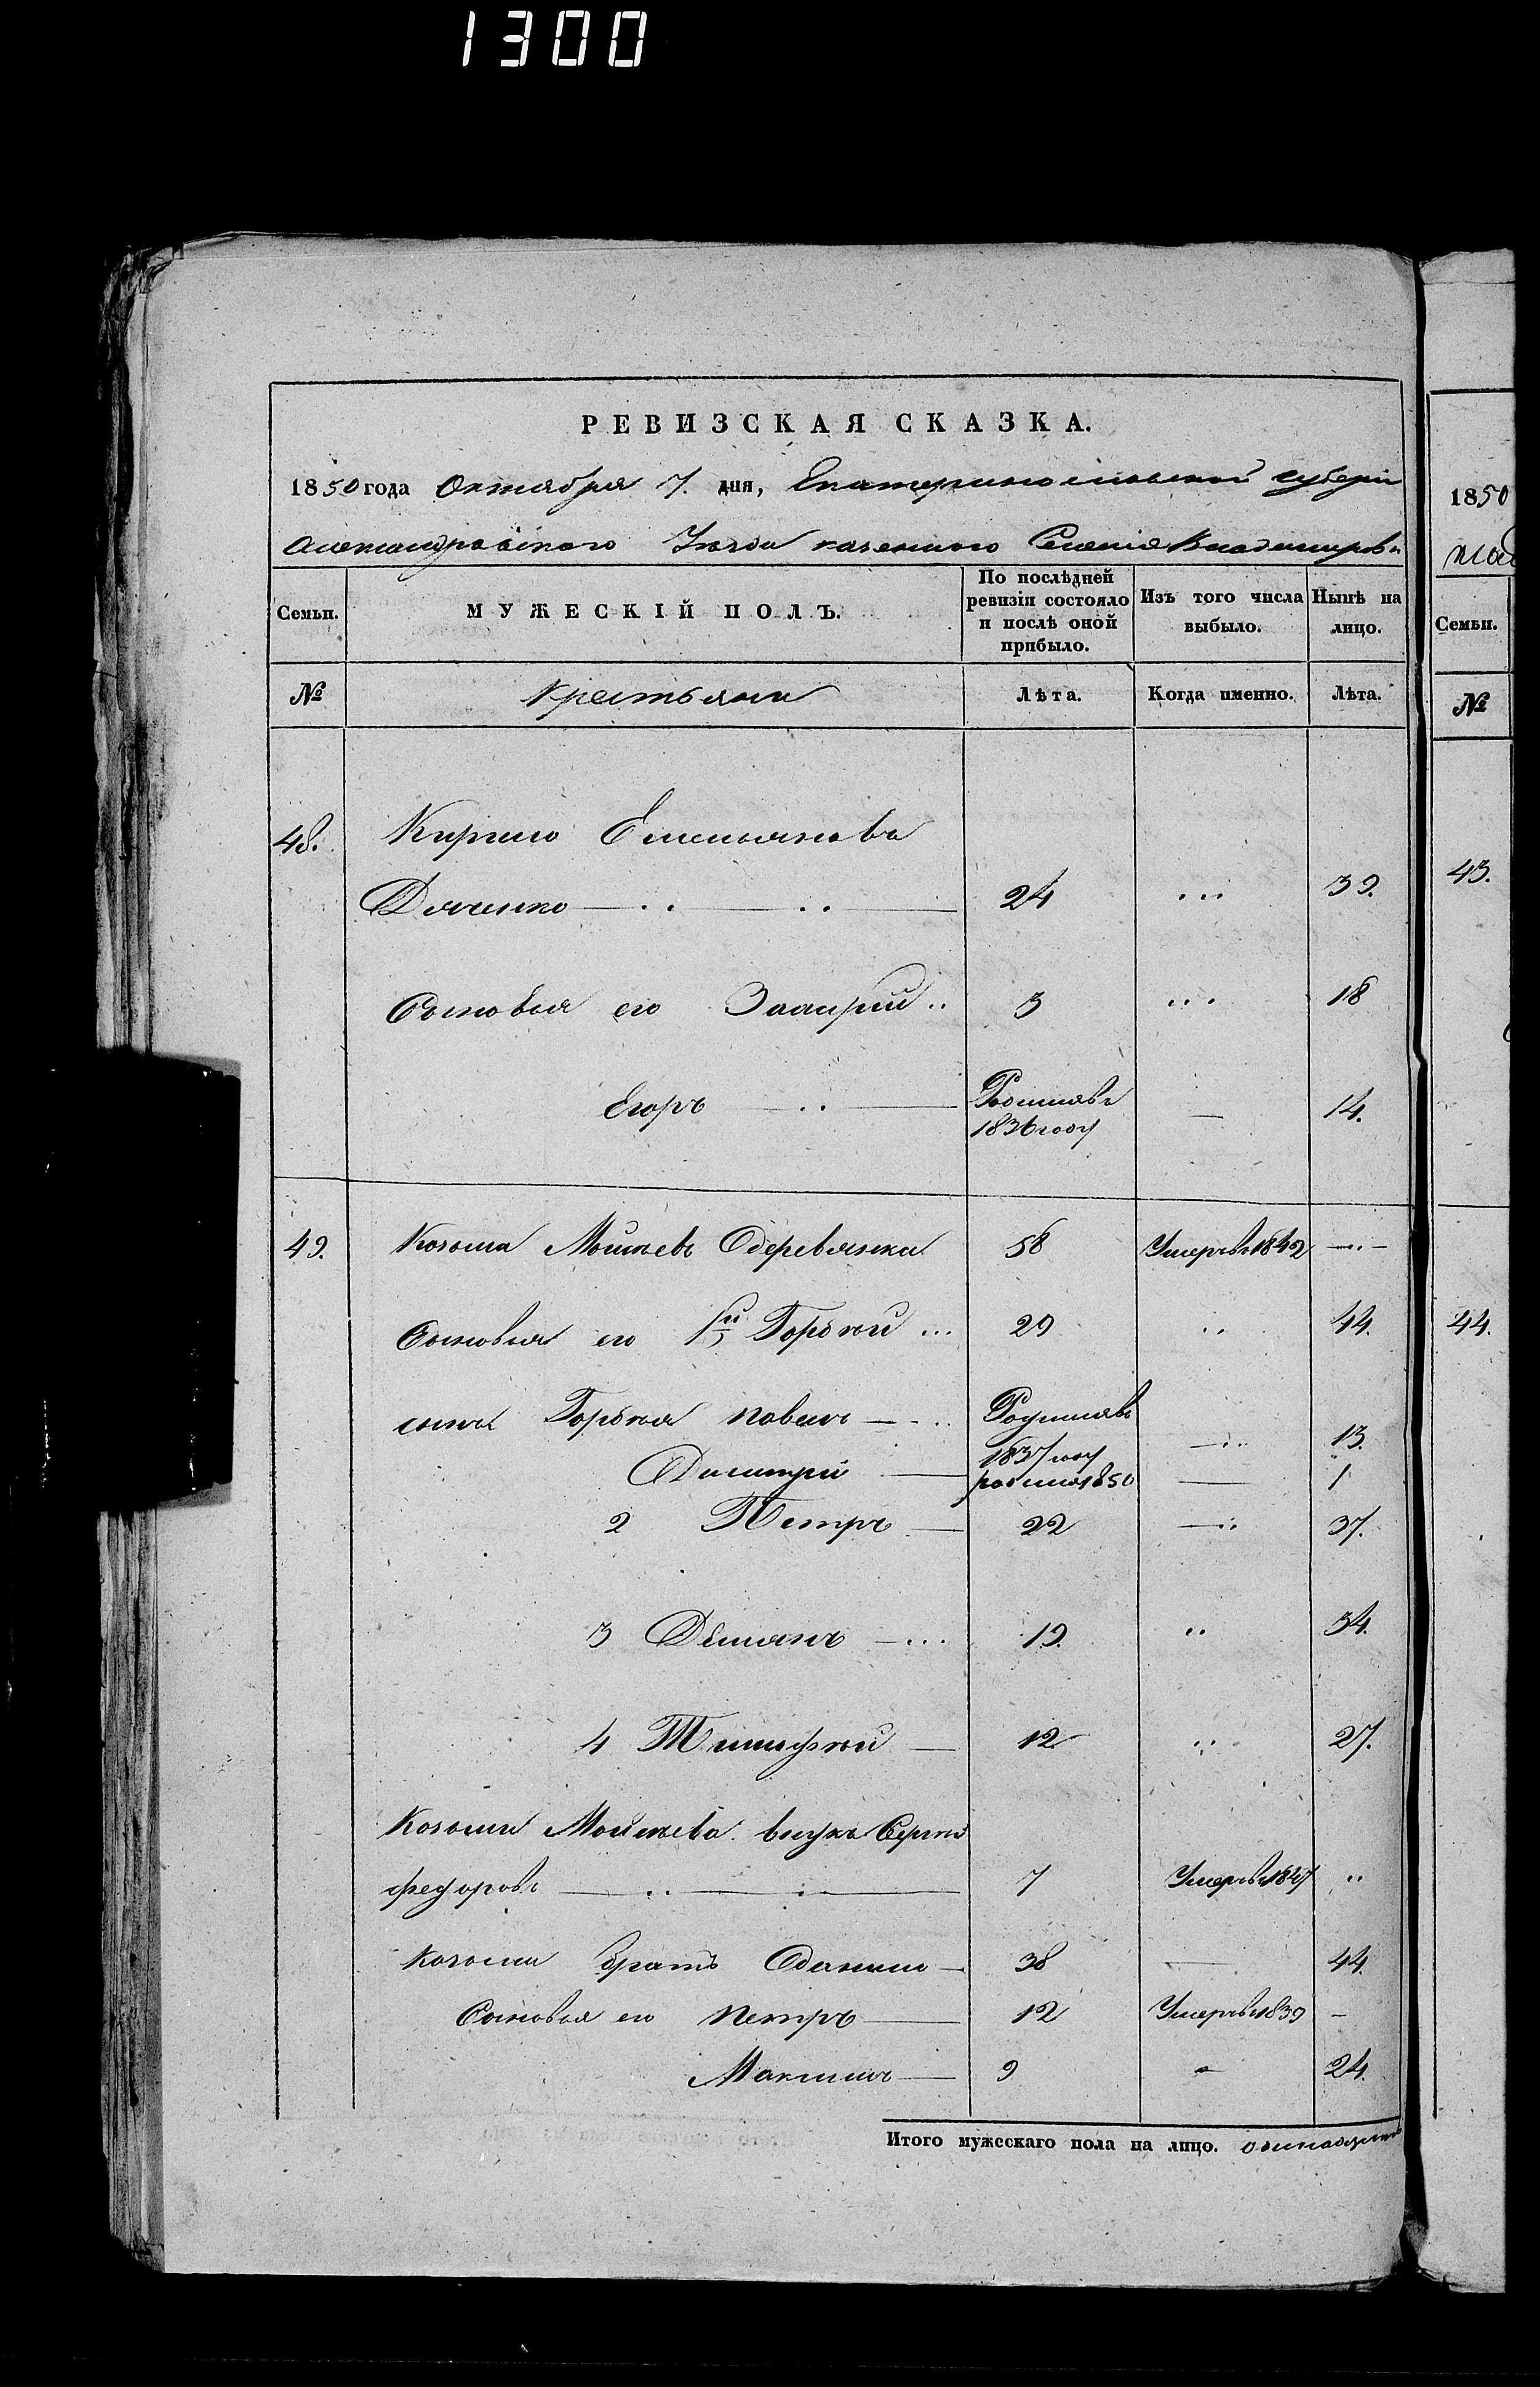 1300
РЕВИЗСКАЯ СКАЗКА.
1850 года Октября 7. дня, Екатеринославской губерніи
Александровскаго Уѣзда казеннаго Селенія Владимировки
Семьи. МУЖЕСКІЙ ПОЛЪ. По послѣдней ревизіи состояло и послѣ оной прибыло. Изъ того числа выбыло. Нынѣ на лицо.
№ Крестьяни Лѣта. Когда именно. Лѣта.
48. Кирило Емельяновъ
Дяченко 24 39.
Сыновья его Захарій 3 18
Егоръ Родился въ 1836 году 14.
49. Козьма Мойсѣевъ Одеревянка 58 Умеръ въ 1842
Сыновья его 1й Гордѣй 29 44.
сынъ Гордѣя Павелъ Родился въ 1837 году 13.
Димитрій родился 1850 1
2 Петръ 22 37.
3 Демянъ 19. 34.
4 Тимофѣй 12 27.
Козьми Мойсѣева внукъ Сергѣй
Федоровъ 7 Умеръ въ 1847
Козьми братъ Данило 38 44
Сыновья его Петръ 12 Умеръ въ 1839
Максимъ 9 24.
Итого мужескаго пола на лицо.
1850
Семьи.
№
43.
44.